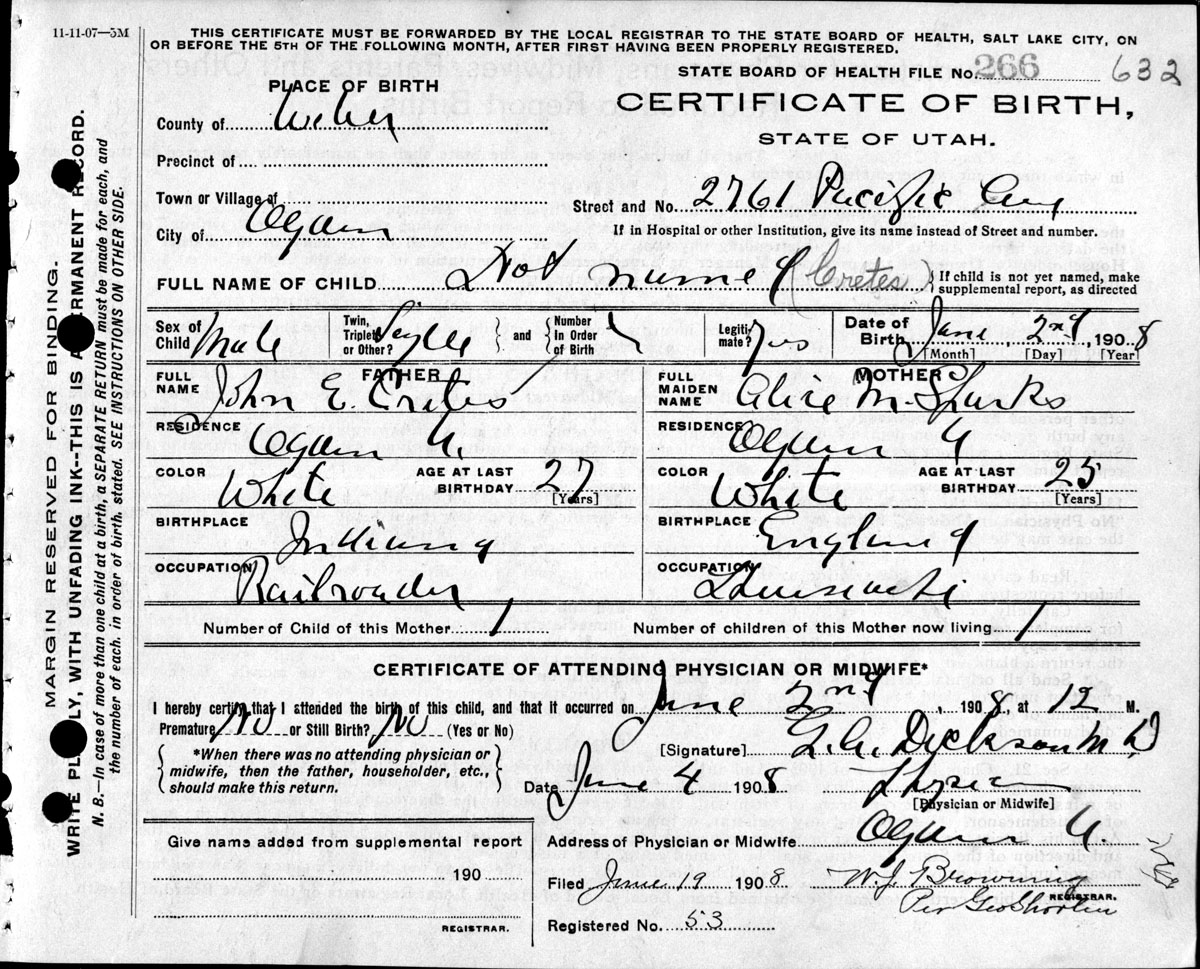 11-11-07—5M
THIS CERTIFICATE MUST BE FORWARDED BY THE LOCAL REGISTRAR TO THE STATE BOARD OF HEALTH, SALT LAKE CITY, ON
OR BEFORE THE 5TH OF THE FOLLOWING MONTH, AFTER FIRST HAVING BEEN PROPERLY REGISTERED.
STATE BOARD OF HEALTH FILE No. 266 632
PLACE OF BIRTH
CERTIFICATE OF BIRTH,
STATE OF UTAH.
County of Weber
Precinct of
Town or Village of
Street and No. 2761 Pacific Ave
City of Ogden
If in Hospital or other Institution, give its name instead of Street and number.
FULL NAME OF CHILD Not named (Cretes) If child is not yet named, make
supplemental report, as directed
Sex of Child Male Twin, Triplet, or Other? Single and Number In Order of Birth Legitimate? Yes Date of Birth June 2nd, 1908
[Month] [Day] [Year]
FATHER MOTHER
FULL NAME John E. Cretes FULL MAIDEN NAME Alice M. Sparks
RESIDENCE Ogden U. RESIDENCE Ogden U
COLOR White AGE AT LAST BIRTHDAY 27 [Years] COLOR White AGE AT LAST BIRTHDAY 25 [Years]
BIRTHPLACE Indiana BIRTHPLACE England
OCCUPATION Railroader OCCUPATION Housewife
Number of Child of this Mother 1 Number of children of this Mother now living 1
CERTIFICATE OF ATTENDING PHYSICIAN OR MIDWIFE*
I hereby certify that I attended the birth of this child, and that it occurred on June 2nd, 1908, at 12 M.
Premature? No or Still Birth? No (Yes or No)
[Signature] Dickson M D
*When there was no attending physician or
midwife, then the father, householder, etc.,
should make this return.
Date June 4 1908
[Physician or Midwife]
Give name added from supplemental report
Address of Physician or Midwife Ogden U.
190
Filed June 19 1908 W. J. Browning
REGISTRAR.
Per Geo Shorten
REGISTRAR.
Registered No. 53
MARGIN RESERVED FOR BINDING.
WRITE PLAINLY, WITH UNFADING INK--THIS IS A PERMANENT RECORD.
N. B.—In case of more than one child at a birth, a SEPARATE RETURN must be made for each, and
the number of each, in order of birth, stated. SEE INSTRUCTIONS ON OTHER SIDE.